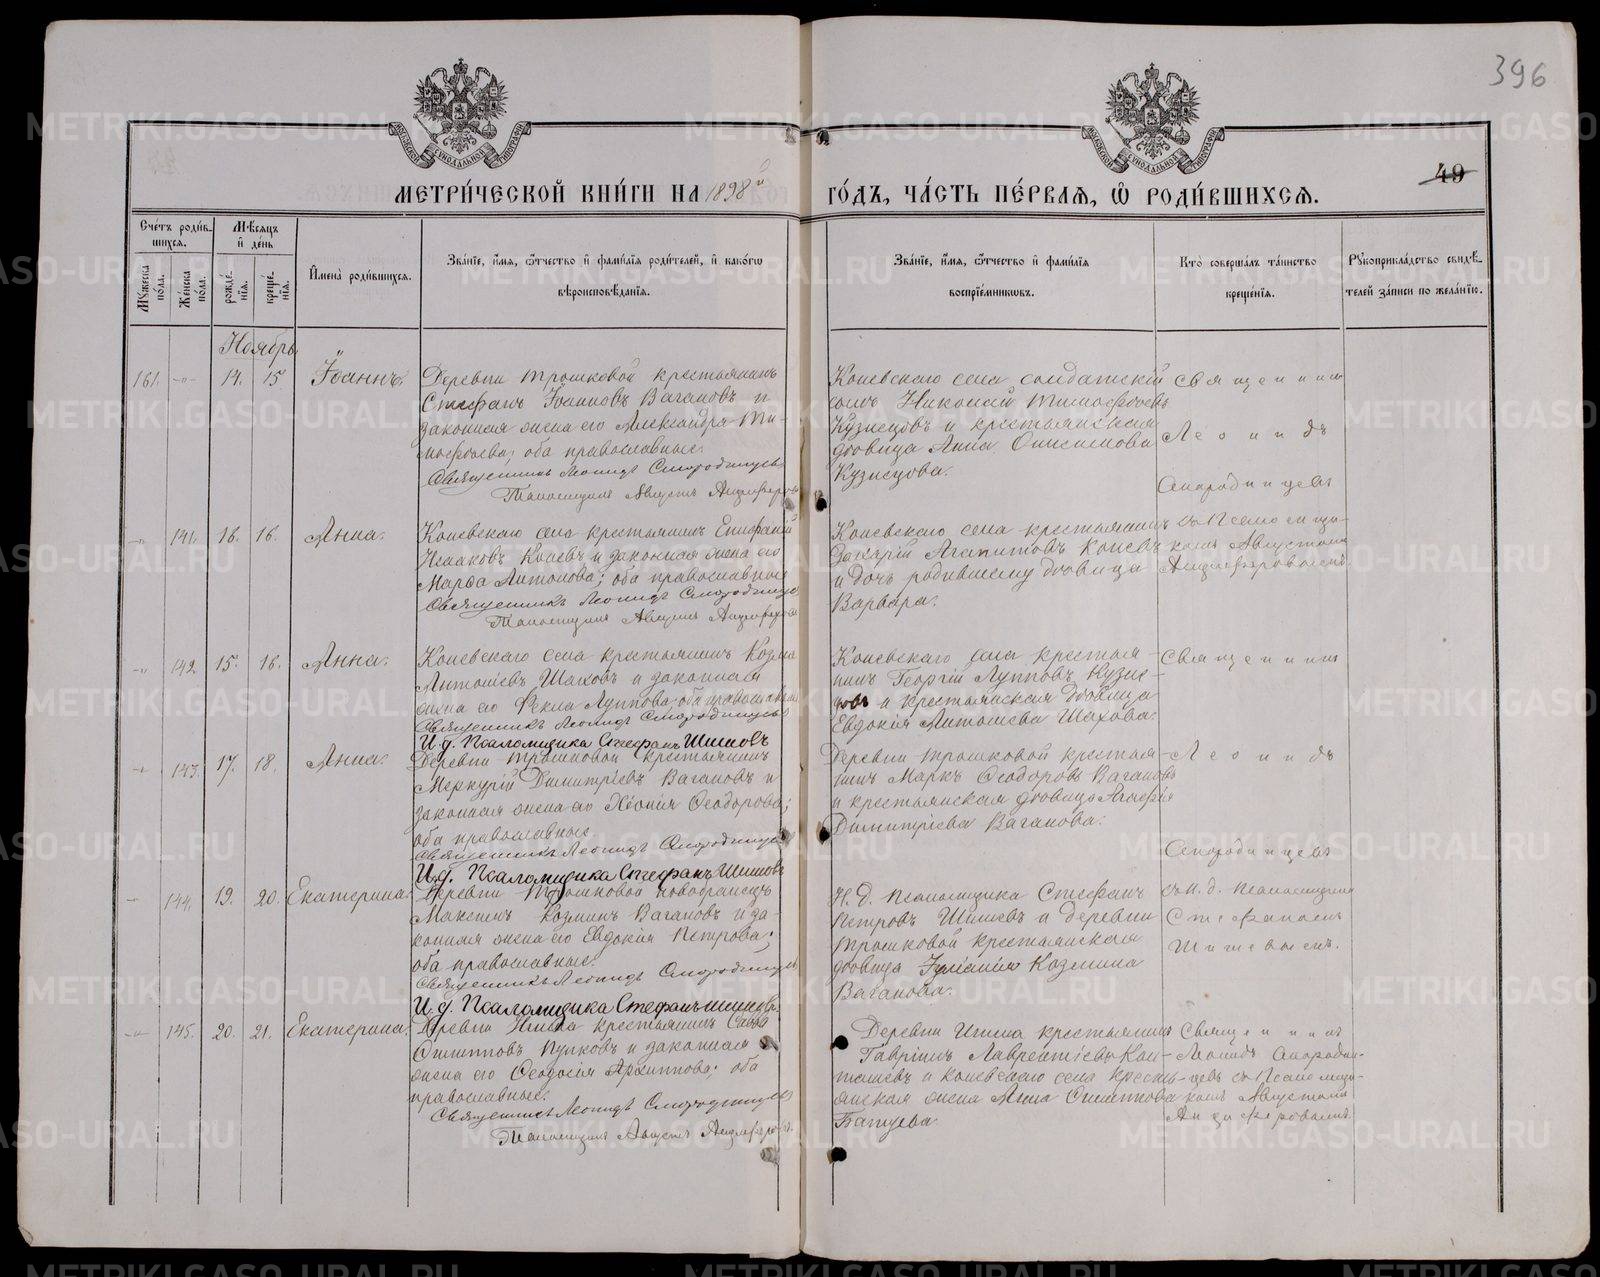 396
49
МЕТРИ́ЧЕСКОЙ КНИ́ГИ НА 1898й
ГО́ДЪ, ЧА́СТЬ ПЕ́РВАЯ, Ѿ РОДИ́ВШИХСЯ.
Сче́тъ роди́в-
шихся.
Мꙋ́жеска по́ла.
Же́нска по́ла.
Мѣ́сяцъ
и̑ де́нь
рожде́-
нїя.
креще́-
нїя.
И̑мена̀ роди́вшихся.
Зва́нїе, и̑́мя, ѻ̑́тчество и̑ фами́лїя роди́телей, и̑ како́гѡ
вѣроисповѣ́данїя.
Зва́нїе, и̑́мя, ѻ̑́тчество и̑ фами́лїя
воспрїе́мникѡвъ.
Кто̀ соверша́лъ та́инство
креще́нїя.
Рꙋкоприкла́дство свидѣ́-
телей за́писи по жела́нїю.
Ноябрь
161. -"- 14. 15. Іоаннъ.
Деревни Трошковой крестьянинъ
Стефанъ Іоанновъ Вагановъ и
законная жена его Александра Ти-
мофеева; оба православные.
Священникъ Леонидъ Смородинцевъ
Псаломщикъ Августъ Анциферовъ
Коневскаго села солдатскій
сынъ Николай Тимофеевъ
Кузнецовъ и крестьянская
дѣвица Анна Онисимова
Кузнецова.
Священникъ
Леонидъ
Смородинцевъ
-"- 141. 16. 16. Анна.
Коневскаго села крестьянинъ Епифаній
Исааковъ Коневъ и законная жена его
Марфа Антонова; оба православные
Священникъ Леонидъ Смородинцевъ
Псаломщикъ Августъ Анциферовъ
Коневскаго села крестьянинъ
Захарій Агапитовъ Коневъ
и дочь родившему дѣвица
Варвара.
съ Псаломщи-
комъ Августомъ
Анциферовымъ.
-"- 142. 15. 16. Анна.
Коневскаго села крестьянинъ Козма
Антоніевъ Шаховъ и законная
жена его Ѳекла Луппова; оба православные
Священникъ Леонидъ Смородинцевъ
И.д. Псаломщика Стефанъ Шишовъ
Коневскаго села крестья-
нинъ Георгій Лупповъ Кузне-
цовъ и крестьянская дѣвица
Евдокія Антоніева Шахова.
Священникъ
-"- 143. 17. 18. Анна.
Деревни Трошковой крестьянинъ
Меркурій Димитріевъ Вагановъ и
законная жена его Хіонія Ѳеодорова;
оба православные.
Священникъ Леонидъ Смородинцевъ
И.д. Псаломщика Стефанъ Шишовъ
Деревни Трошковой крестья-
нинъ Маркъ Ѳеодоровъ Вагановъ
и крестьянская дѣвица Агафія
Димитріева Ваганова.
Леонидъ
Смородинцевъ
-"- 144. 19. 20. Екатерина.
Деревни Трошковой новобранецъ
Максимъ Козминъ Вагановъ и за-
конная жена его Евдокія Петрова;
оба православные.
Священникъ Леонидъ Смородинцевъ
И.д. Псаломщика Стефанъ Шишовъ.
И.д. Псаломщика Стефанъ
Петровъ Шишевъ и деревни
Трошковой крестьянская
дѣвица Іуліанія Козмина
Ваганова.
съ И.д. Псаломщика
Стефаномъ
Шишевымъ.
-"- 145. 20. 21. Екатерина.
Деревни крестьянинъ Савва
Пупковъ и законная
жена его Ѳеодосія Архиппова; оба
православные.
Священникъ Леонидъ Смородинцевъ
Псаломщикъ Августъ Анциферовъ.
Деревни крестьянинъ
Гавріилъ Лаврентіевъ
и Коневскаго села кресть-
янская жена Анна
Священникъ
Леонидъ Смородин-
цевъ съ Псаломщи-
комъ Августомъ
Анциферовымъ.
METRIKI.GASO-URAL.RU